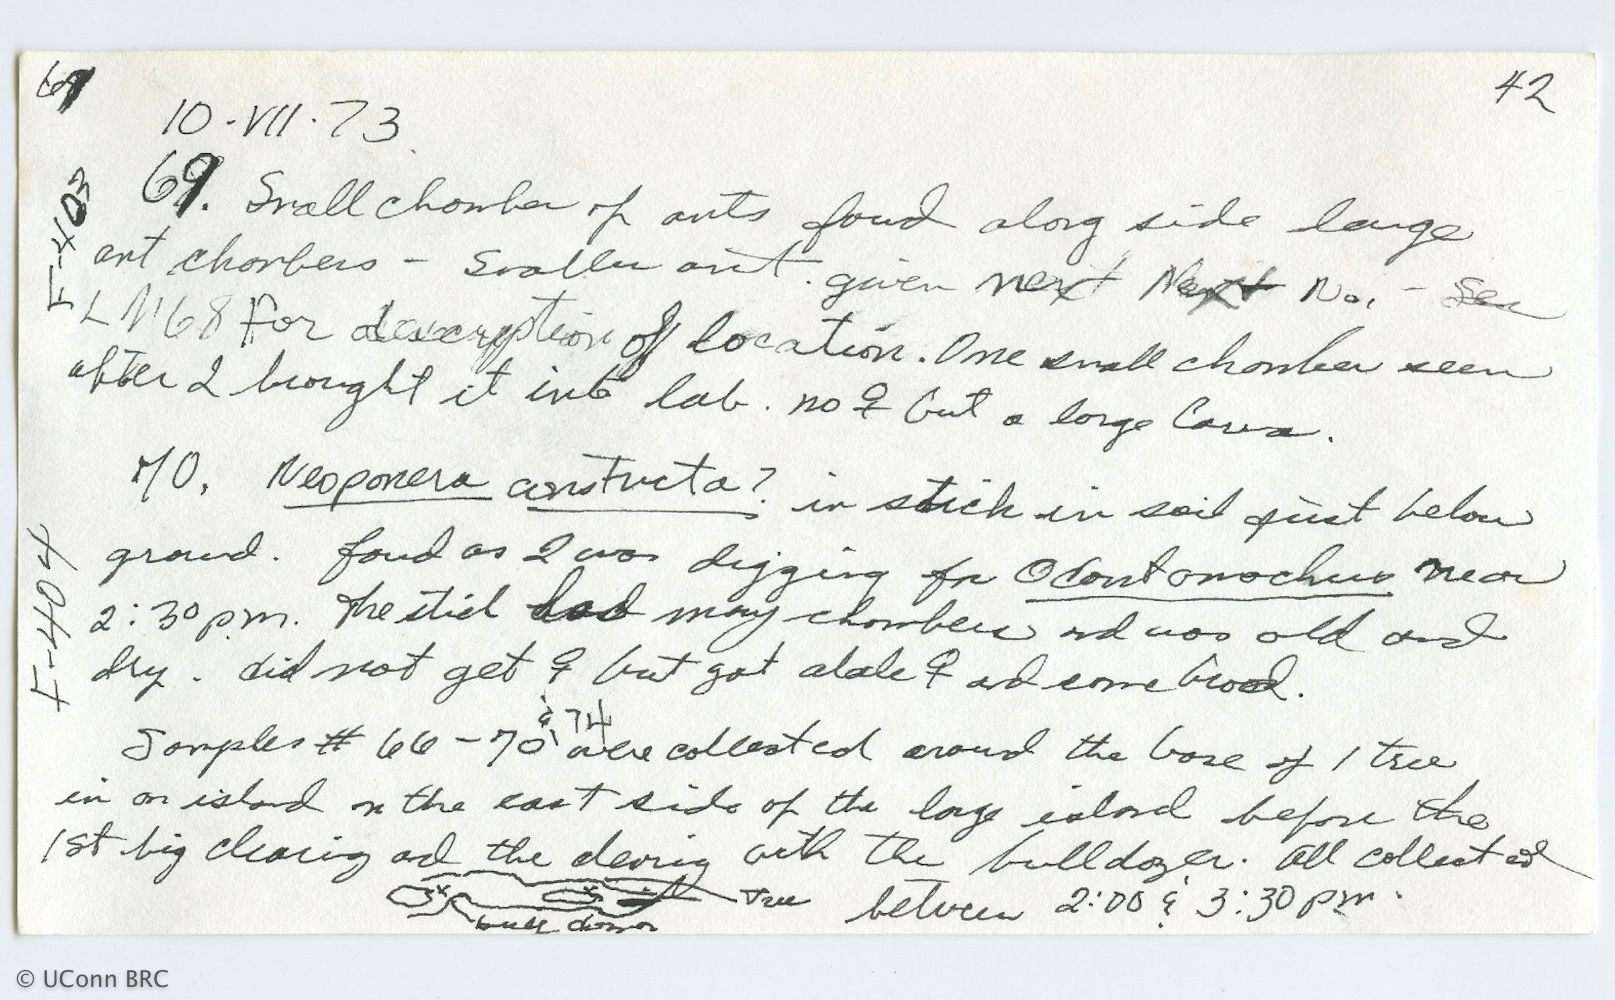 69
42
10·VII·73
F-403
69. Small chamber of ants foud along side large
ant chambers - smaller ant given next Next No. - See
LN68 for description of location. One small chamber seen
after I brought it into lab. no ♀ but a large larva.
70. Neoponera constructa? in stick in soil just below
F-404
ground. foud as I was digging for Odontomachus near
2:30 p.m. The stick had many chambers and was old and
dry. did not get ♀ but got alate ♀ ad some brood.
& 74
Samples # 66-70 were collected around the base of 1 tree
in an island on the east side of the large island before the
1st big clearing ad the clearing with the bulldozer. All collected
Tree between 2:00 & 3:30 pm.
© UConn BRC